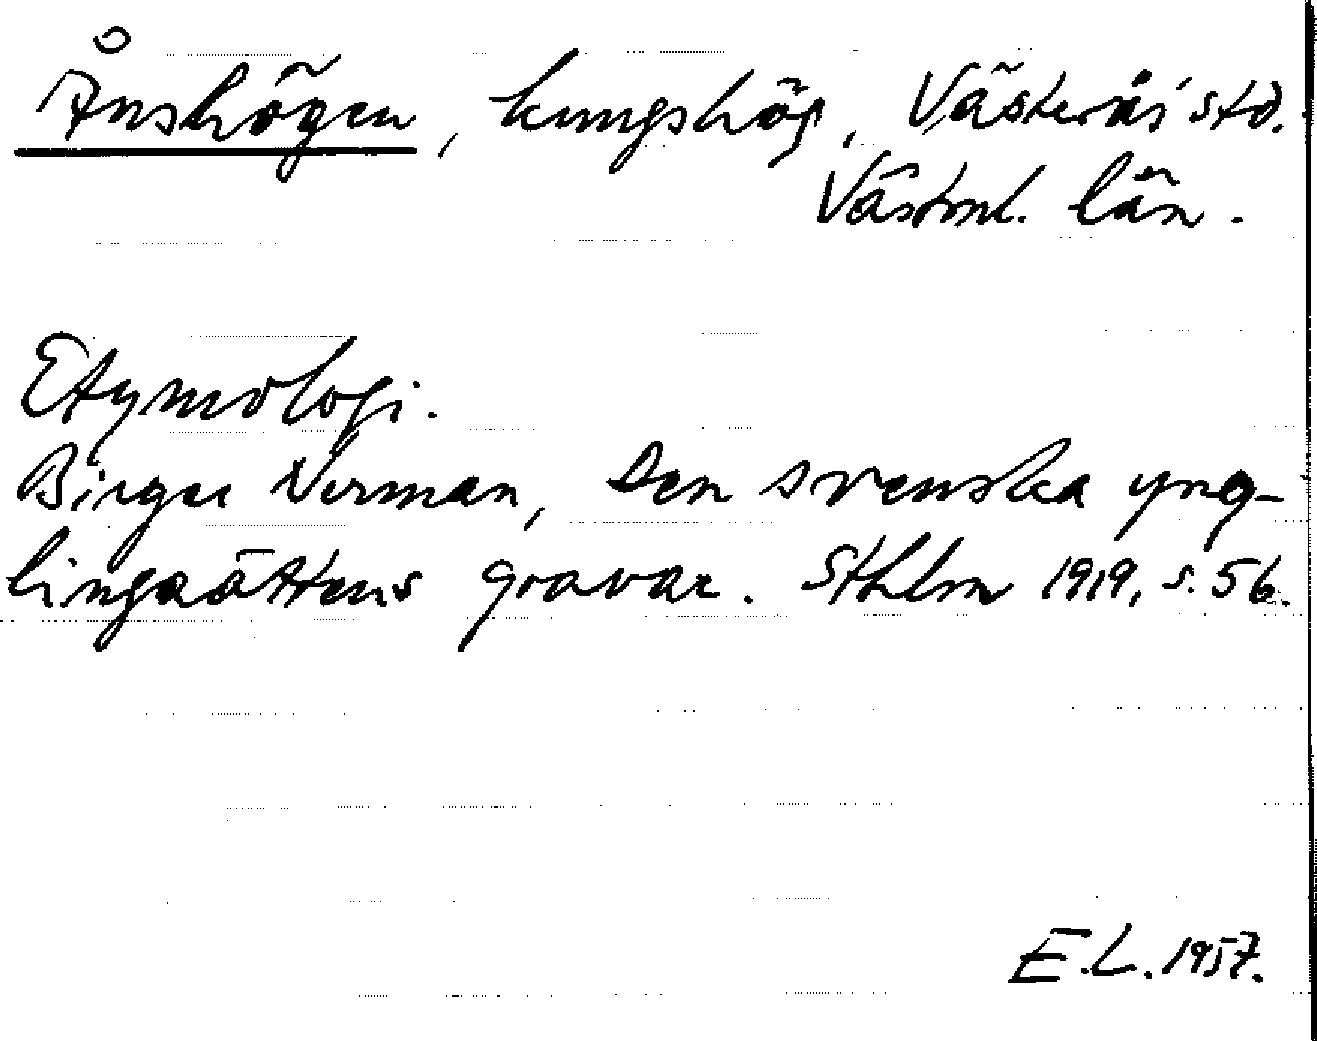 Ånshögen, kungshög, Västerås std.
Västml. län.
Etymologi.
Birger Nerman, Den svenska yng-
lingaättens gravar. Sthlm 1919, s. 56.
E.L. 1957.